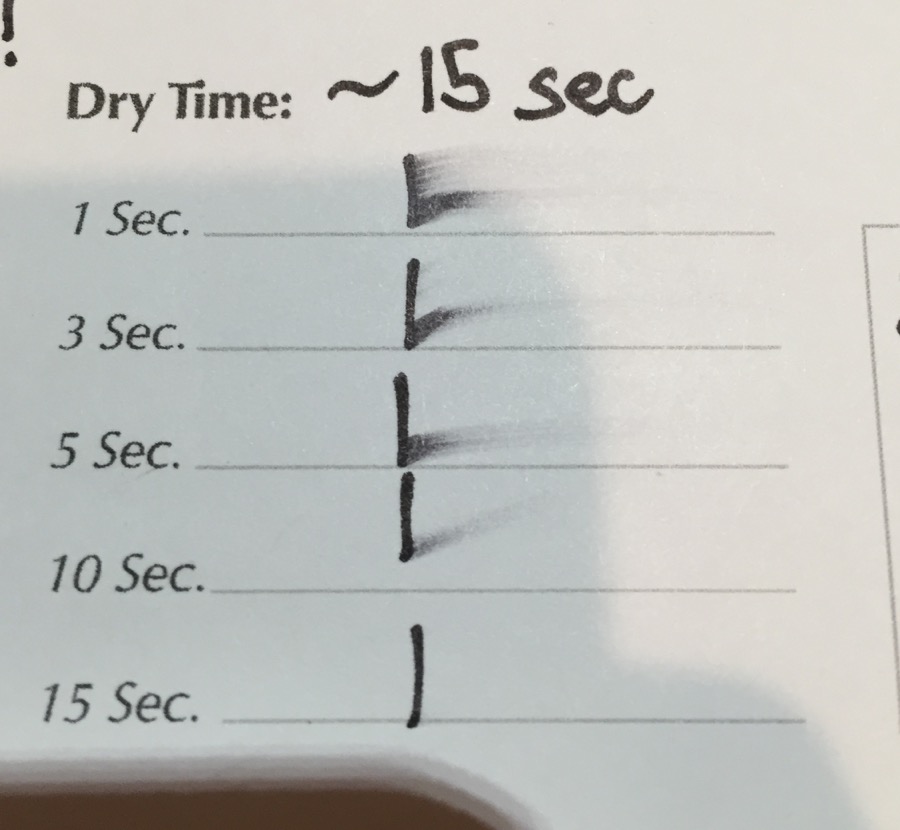 !
Dry Time: ~15 sec
1 Sec.
3 Sec.
5 Sec.
10 Sec.
15 Sec.